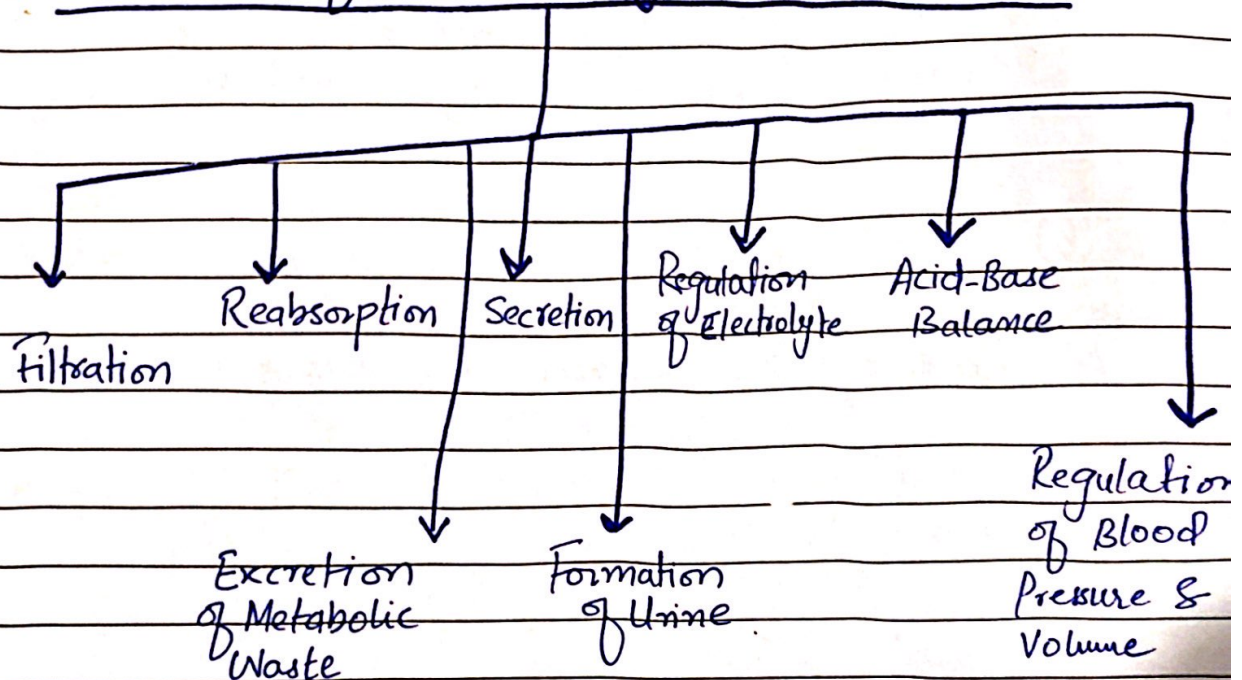 Filtration
Reabsorption
Secretion
Regulation
of Electrolyte
Acid-Base
Balance
Excretion
of Metabolic
Waste
Formation
of Urine
Regulation
of Blood
Pressure &
Volume